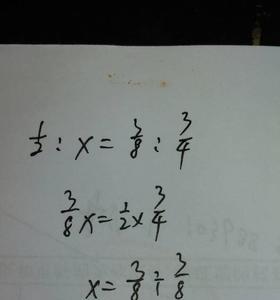 1/2 : x = 3/8 : 3/4
3/8 x = 1/2 × 3/4
x = 3/8 ÷ 3/8